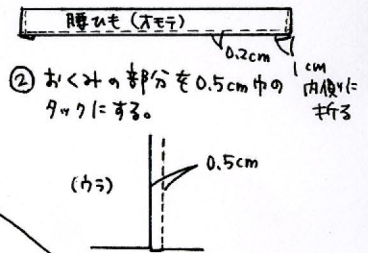 腰ひも(オモテ)
0.2cm
1cm
内側に
折る
② おくみの部分を0.5cm巾の
タックにする。
0.5cm
(ウラ)